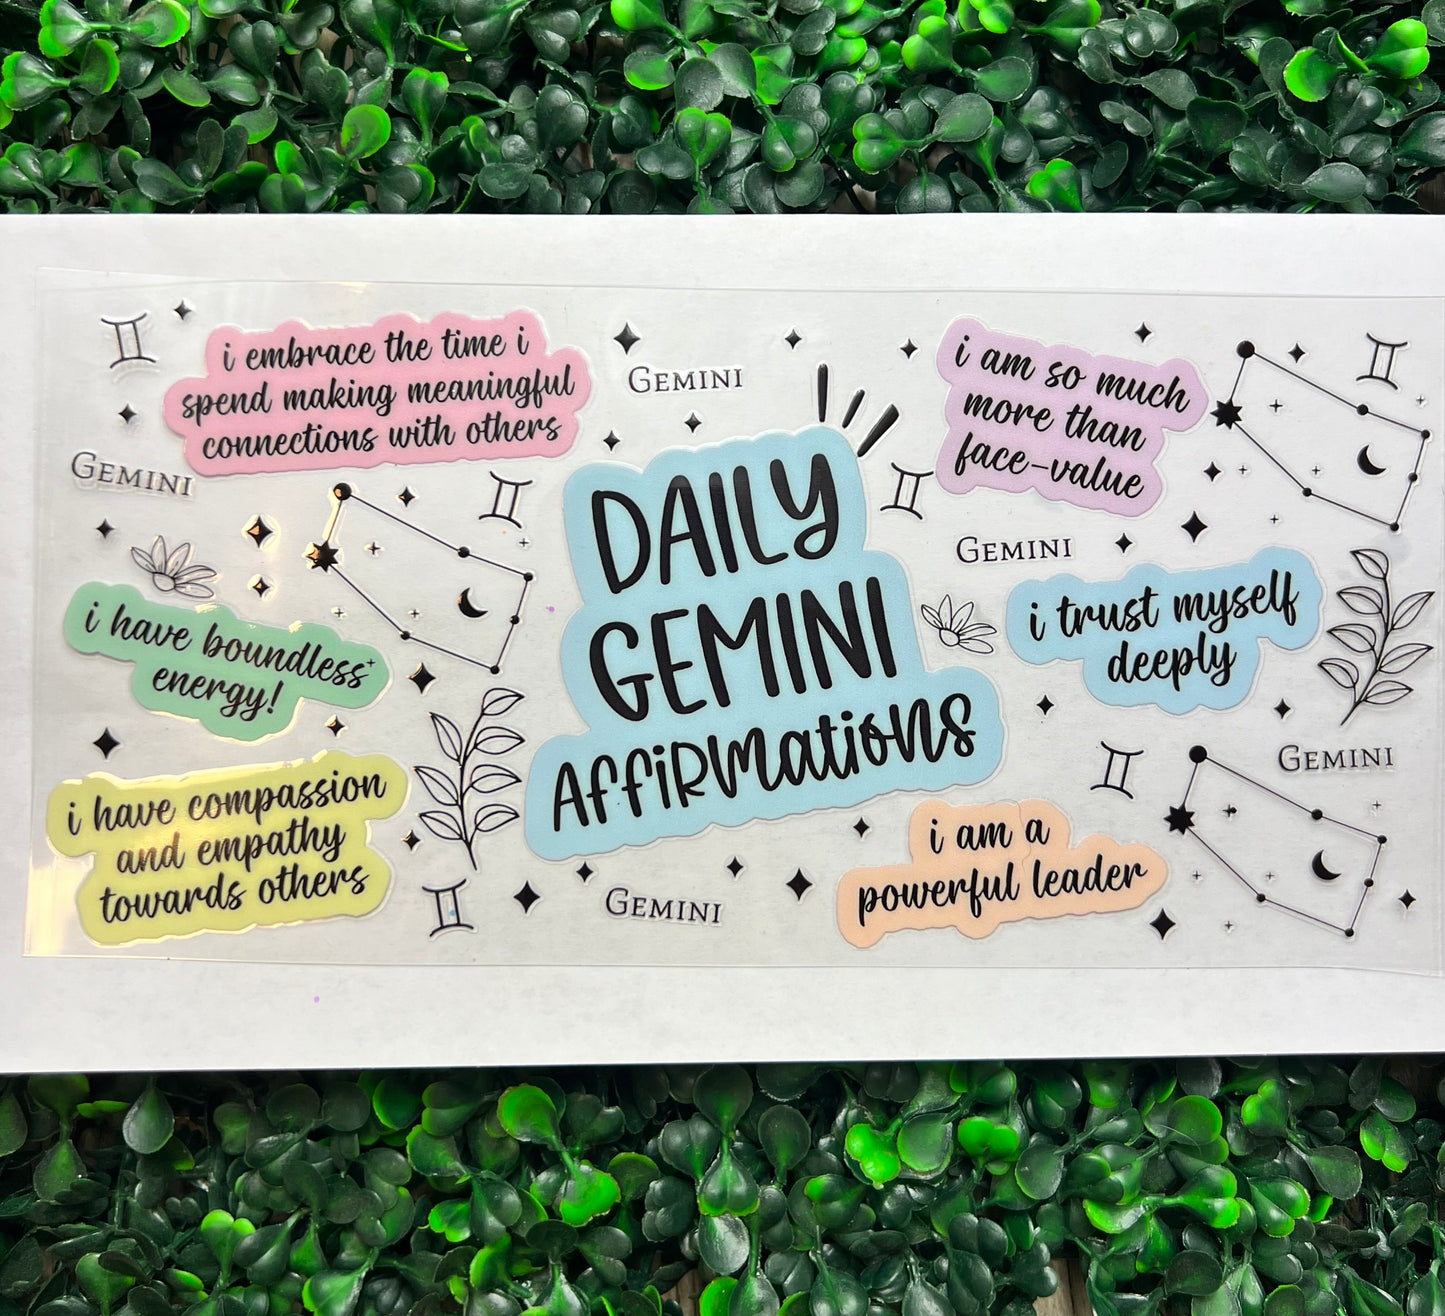 i embrace the time i
spend making meaningful
connections with others
GEMINI
i am so much
more than
face-value
GEMINI
DAILY
GEMINI
AFFiRMATiONS
GEMINI
i have boundless
energy!
i trust myself
deeply
GEMINI
i have compassion
and empathy
towards others
i am a
powerful leader
GEMINI